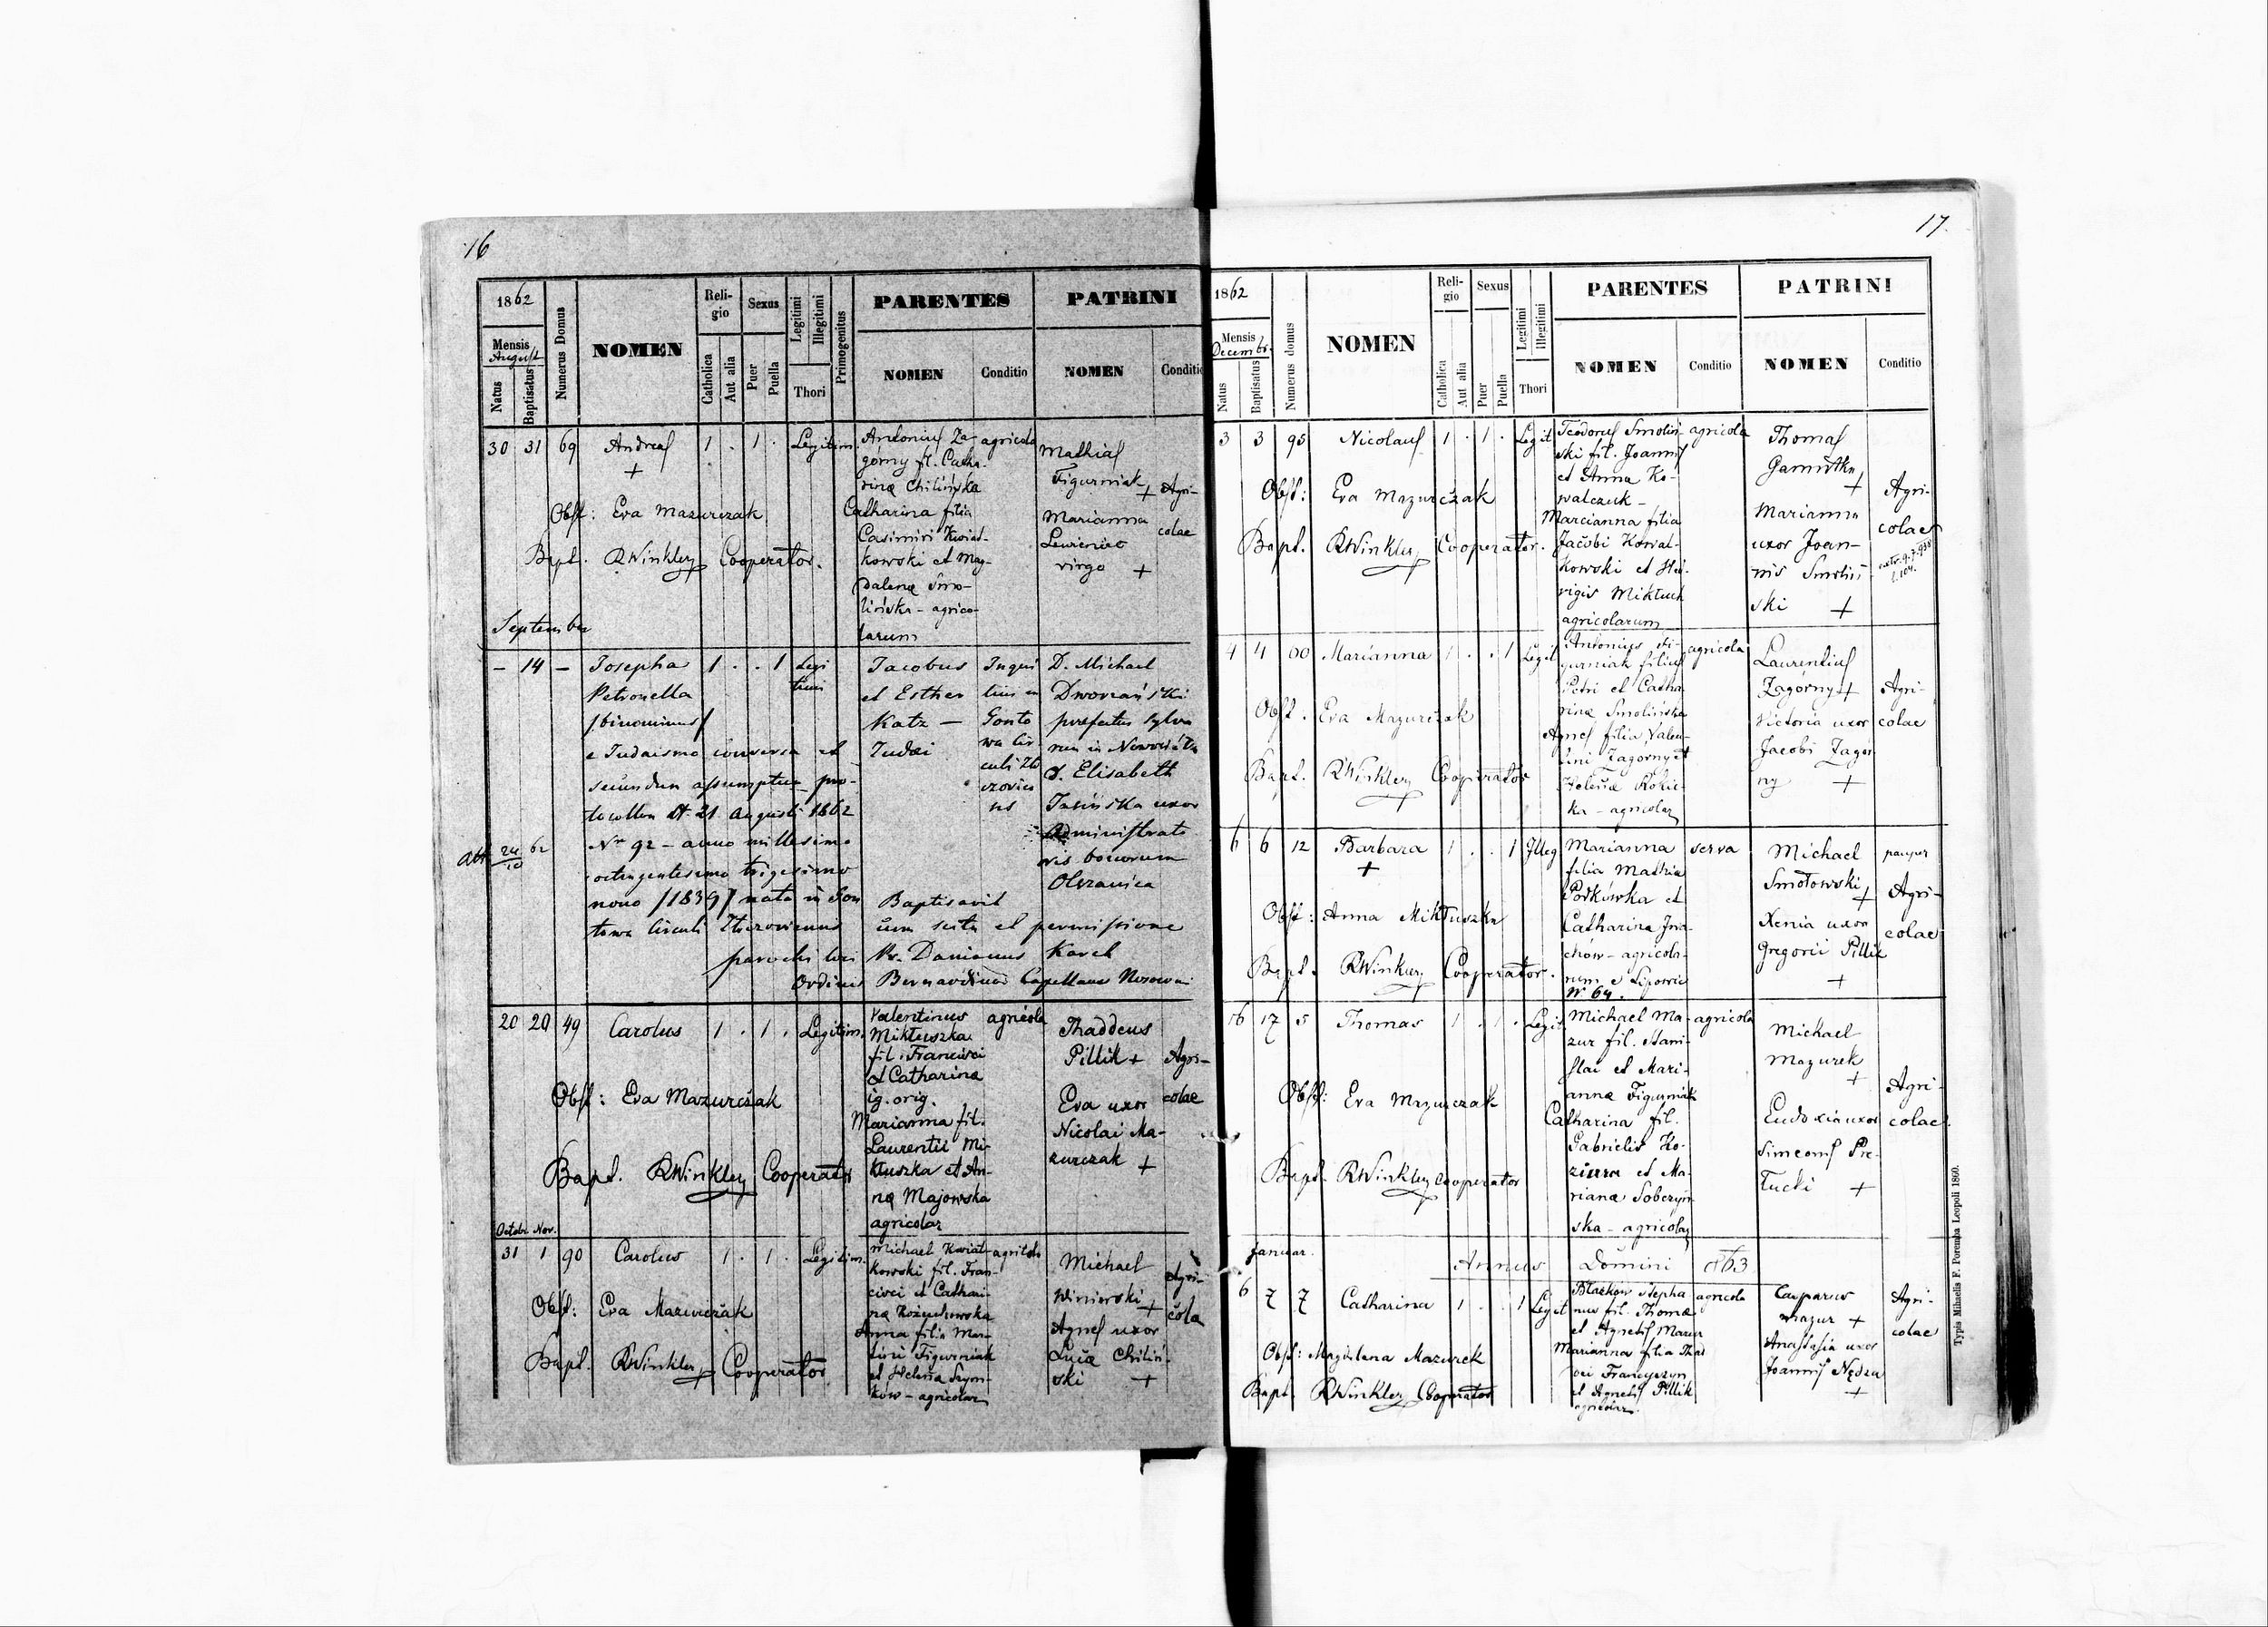 16
1862
Mensis
August
Natus
Baptisatus
Numerus Domus
NOMEN
Reli-
gio
Catholica
Aut alia
Sexus
Puer
Puella
Legitimi
Illegitimi
Thori
Primogenitus
PARENTES
NOMEN
Conditio
PATRINI
NOMEN
Conditio
30 31 69 Andreas 1 . 1 . Legitim.
+
Obst: Eva Mazurczak
Bapt. RWinkler Cooperator.
Antonius Za-
górny fil. Catha-
rinæ Chilińska
Catharina filia
Casimiri Kwiat-
kowski et Mag-
dalenæ Smo-
lińska - agrico-
larum
agricola
Mathias
Figurniak +
Marianna
Lewieniec
virgo +
Agri-
colae
September
- 14 - Josepha 1 . . 1 Legi
timi
Petronella
/binominus/
e Judaismo conversa et
secundum assumptum pro-
tocollum dt. 21 Augusti 1862
Nr 92 - anno millesimo
octingentesimo trigesimo
nono /1839/ nata in Gon
towa Circuli Złoczoviensis
24/10 62
Jacobus
et Esther
Katz -
Judæi
Inqui
lini in
Gonto
wa Cir-
culi Zło
czovien
sis
D. Michael
Dworzański
præfectus sylva
rum in
D. Elisabeth
Jasińska uxor
Administrato
ris bonorum
Olszanica
Baptisavit
cum scitu et permissione
parochi loci Fr. Damianus Karch
Ordinis Bernardinorum Capellanus
20 20 49 Carolus 1 . 1 . Legitim.
Obst: Eva Mazurczak
Bapt. RWinkler Cooperator
Valentinus
Miktuszka
fil. Francisci
et Catharinæ
ig. orig.
Marianna fil.
Laurentii Mi-
ktuszka et An-
næ Majowska
agricolar
agricola
Thaddeus
Pillik +
Eva uxor
Nicolai Ma-
zurczak +
Agri-
colae
Octobr. Nov.
31 1 90 Carolus 1 . 1 . Legitim.
Obst: Eva Mazurczak
Bapt. RWinkler Cooperator
Michael Kwiat-
kowski fil. Fran-
cisci et Cathari-
næ
Anna filia Mar-
tini Figurniak
et Helena Szym-
ków - agricolar
agricola
Michael
Winiarski +
Agnes uxor
Lucæ Chiliń-
ski +
Agri-
colæ
17.
1862
Mensis
Decembr.
Natus
Baptisatus
Numerus domus
NOMEN
Reli-
gio
Catholica
Aut alia
Sexus
Puer
Puella
Legitimi
Illegitimi
Thori
PARENTES
NOMEN
Conditio
PATRINI
NOMEN
Conditio
3 3 95 Nicolaus 1 . 1 . Legit
Obst: Eva Mazurczak
Bapt. RWinkler Cooperator.
Teodorus Smoliń-
ski fil. Joannis
et Anna Ko-
walczuk -
Marcianna filia
Jacobi Kowal-
kowski et Hed-
vigis Miktuch
agricolarum
agricola
Thomas
+
Marianna
uxor Joan-
nis Smoliń
ski +
Agri-
colae
4 4 00 Marianna 1 . . 1 Legit
Obst. Eva Mazurczak
Bapt. RWinkler Cooperator
Antonius Fi-
gurniak filius
Petri et Catha-
rinæ Smolińska
Agnes filia Valen-
tini Zagórny et
Helenæ Rokic-
ka - agricolar
agricola
Laurentius
Zagórny +
Victoria uxor
Jacobi Zagór-
ny +
Agri-
colae
6 6 12 Barbara 1 . . 1 Illeg
+
Obst: Anna Miktuszka
Bapt. RWinkler Cooperator.
Marianna
filia Mathiæ
Podkówka et
Catharina
agricola-
rum e Lipowic
Nr 64.
serva
Michael
Smotowski +
Xenia uxor
Gregorii Pillik
+
pauper
Agri-
colae
16 17 5 Thomas 1 . 1 . Legit.
Obst: Eva Mazurczak
Bapt. RWinkler Cooperator
Michael Ma-
zur fil. Stani-
slai et Mari-
annæ Figurniak
Catharina fil.
Gabrielis Ko-
ziura et Ma-
rianæ Sobczyn-
ska - agricolar
agricola
Michael
Mazurek
+
Eudoxia uxor
Simeonis Pie-
tucki +
Agri-
colae.
Januar.
Annus Domini 1863
6 7 7 Catharina 1 . . 1 Legit
Obst: Magdalena Mazurek
Bapt. RWinkler Cooperator
Błazków Stepha
nus fil. Thomæ
et Agnetis Mazur
Marianna filia Thad
dei Franczyszyn
et Agnetis Pillik
agricolar.
agricola
Casparus
Mazur +
Anastasia uxor
Joannis Nędza
+
Agri-
colae
Typis Mihaelis F. Poremba Leopoli 1860.